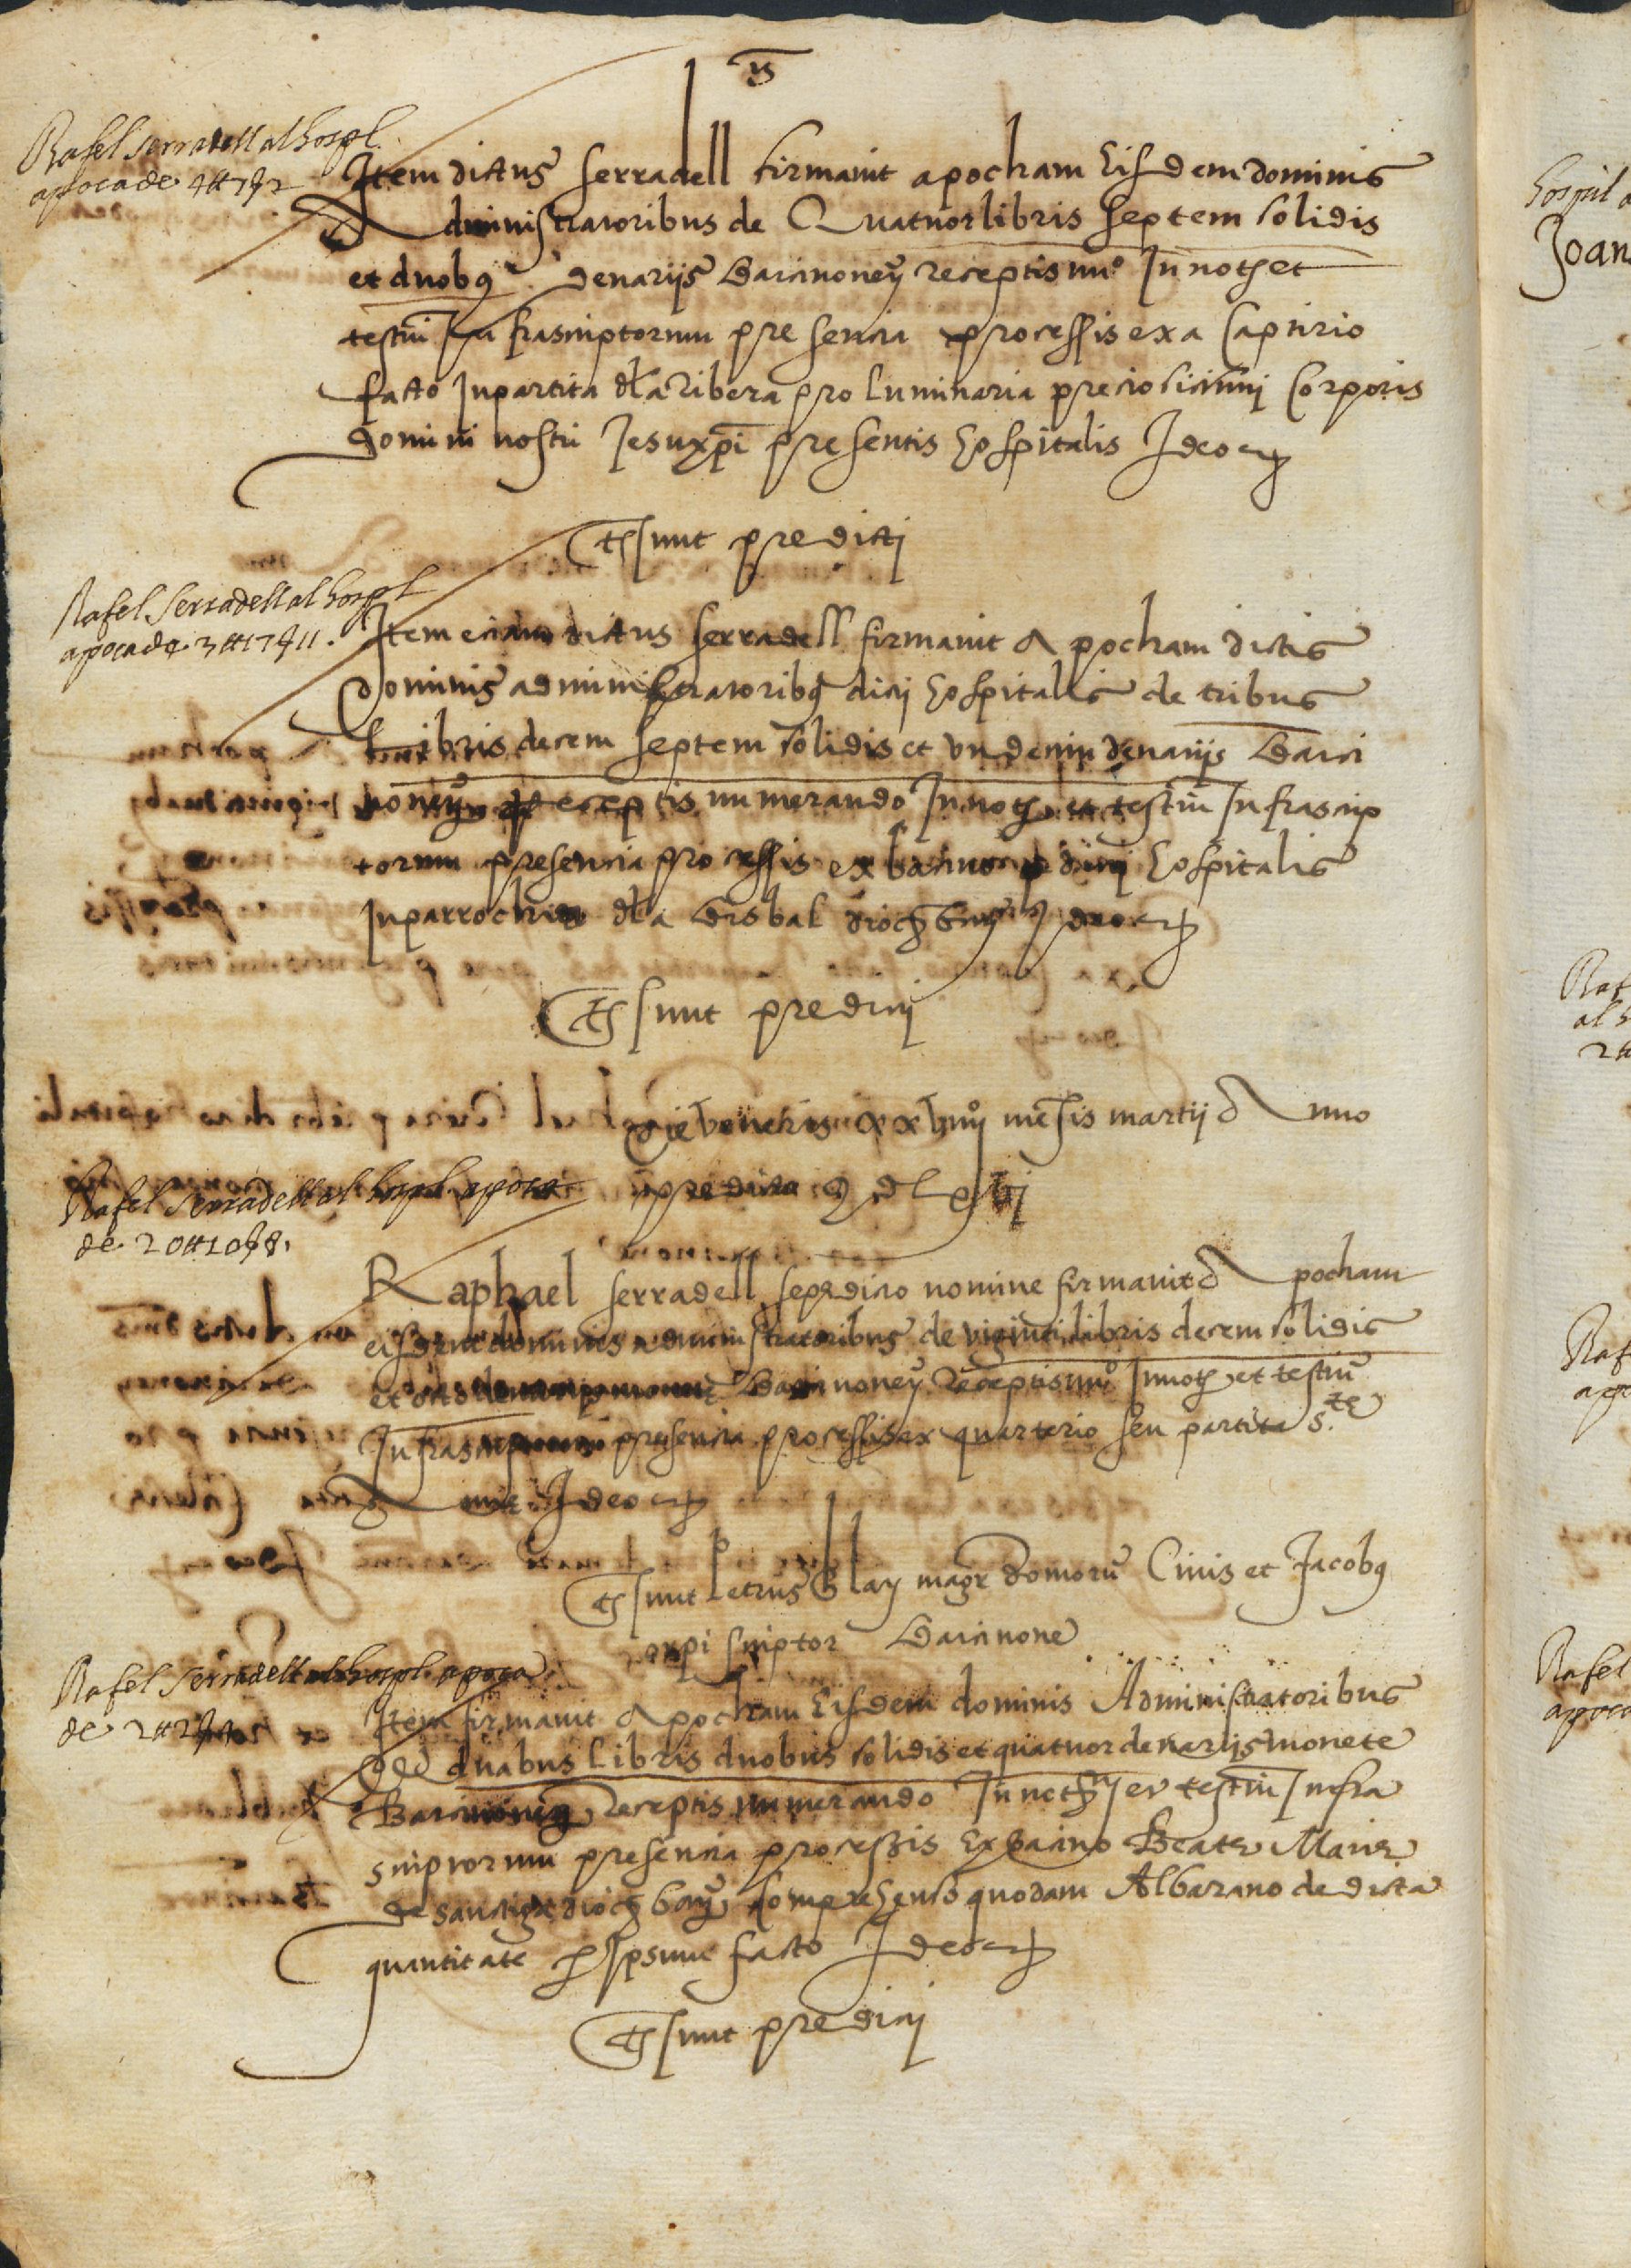 Rafel serradell al hospl.
apoca de 4 tt 7 ß 2
Item dictus serradell firmavit apocham Eisdem dominis
Administratoribus de Quatuor libris septem solidis
et duobus denariis Barcinonen receptis nuo In noth et
testiu Infrascriptorum presencia processis ex a Captirio
facto In partita dla Ribera pro luminaria preciosicimi Corporis
domini nostri Jesuxpi presentis hospitalis Ideo
Ts sunt predicti
Rafel Serradell al hospl
apoca de 3 tt 17 ß 11.
Item eciam dictus serradell firmavit Apocham dictis
Dominis administratoribus dicti hospitalis de tribus
libris decem septem solidis et undecim denariis Barci
nonen receptis numerando In noth et testiu Infrascrip
torum presencia processis ex bacino dicti hospitalis
In parrochia dla Bisbal dioch Ideo
Ts sunt predicti
Die veneris xxviiij mensis martij Anno
predicto MDLxvj
Rafel Serradell al hospl. apoca
de 20 tt 10 ß 8.
Raphael serradell sepedicto nomine firmavit Apocham
eisdem dominis administratoribus de viginti libris decem solidis
et octo Barcinonen Receptis nuo In noth et testiu
Infrascriptorum presencia processis ex quarterio seu partita S.te
Anne Ideo
Ts sunt Petrus Blay magr domoru Civis et Jacobus
scriptor Barcinone
Rafel Serradell al hospl. apoca
de 2 tt 2 ß 4
Item firmavit Apocham Eisdem dominis Administratoribus
De duabus Libris duobus solidis et quatuor denariis monete
Barcinonen Receptis numerando In noth et testiu Infra
scriptorum presencia processis Ex bacino Beate Marie
de dioch comprehenso quodam Albarano de dicta
quantitate per Ipsum facto Ideo
Ts sunt predicti